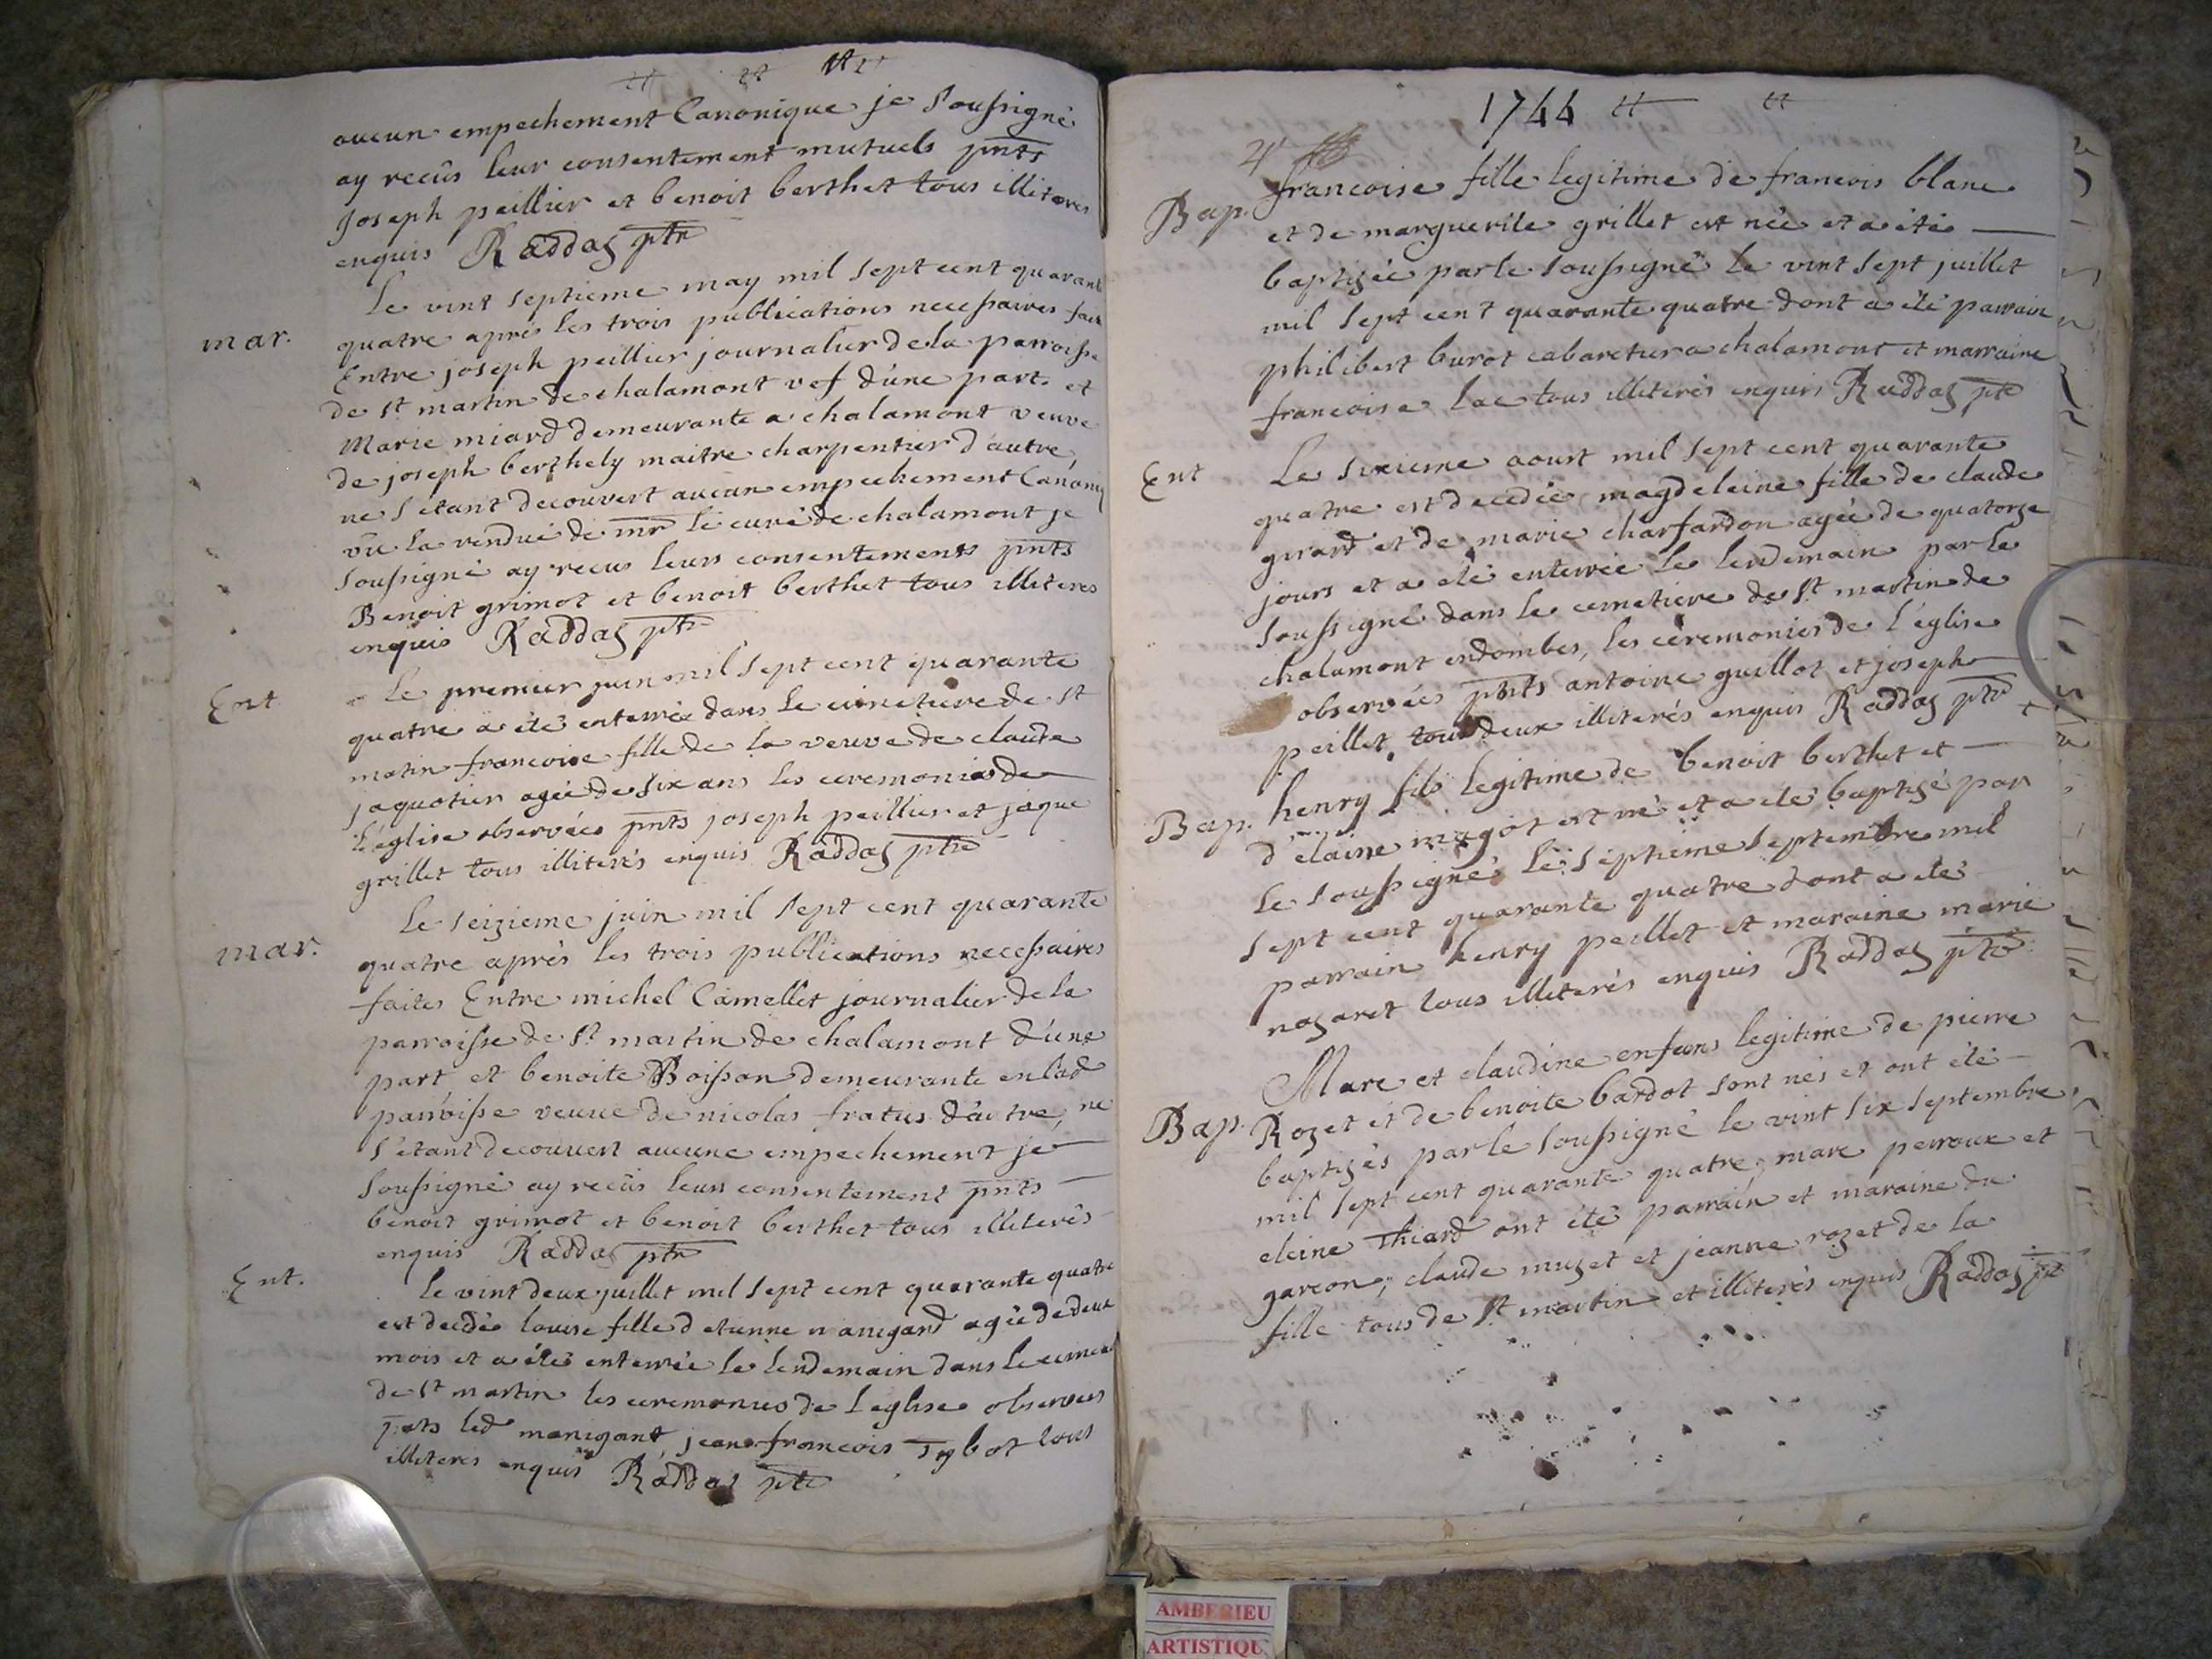 aucun empechement Canonique je Soussigné
ay recûs leur consentement mutuels pnts
Joseph peillier et benoit berthet tous illiterés
enquis Raddaz ptre
mar.
Le vint septieme may mil sept cent quarante
quatre après les trois publications necessaires faites
Entre joseph peillier journalier de la parroisse
de st martin de chalamont vef d'une part et
Marie miard demeurante a chalamont veuve
de joseph berthely maitre charpentier d'autre,
ne s'etant decouvert aucun empechement Canoniq
vû la rendue de mr le curé de chalamont je
soussigné ay recus leurs consentements pnts
Benoit grimot et benoit berthet tous illiteres
enquis Raddaz ptre
Ent
Le premier juin mil sept cent quarante
quatre a été enterrée dans le cimetiere de st
matin francoise fille de la veuve de claude
jaquotier agée de six ans les ceremonies de
l'église observées pnts joseph peillier et jaque
grillet tous illiterés enquis Raddaz ptre
mar.
Le seizieme juin mil sept cent quarante
quatre après les trois publications necessaires
faites Entre michel Camellet journalier de la
parroisse de st martin de chalamont d'une
part et benoite Boisson demeurante en lad
parroisse veuve de nicolas fratus d'autre, ne
s'etant decouvert aucune empechement je
soussigné ay recûs leurs consentement pnts
benoit grimot et benoit berthet tous illiterés
enquis Raddaz ptre
Ent.
Le vint deux juillet mil sept cent quarante quatre
est decedée louise fille d'etienne manigand agée de deux
mois et a été enterrée le lendemain dans le
de st martin les ceremonies de l'eglise observées
pnts led manigant, jean francois Tybot tous
illiterés enquis Raddaz ptre
1744 tt tt
Bap.
francoise fille legitime de francois blanc
et de marguerite grillet est née et a été
baptizée par le soussigné le vint sept juillet
mil sept cent quarante quatre dont a été parrain
philibert burot cabaretier a chalamont et marraine
francoise lac tous illiterés enquis Raddaz ptre
Ent
Le sixieme aoust mil sept cent quarante
quatre est decedée magdeleine fille de claude
girard et de marie charfardon agée de quatorze
jours et a été enterrée le lendemain par le
soussigné dans le cemetiere de st martin de
chalamont en dombes, les ceremonies de l'église
observées pnts antoine guillot et joseph
peillet tous deux illiterés enquis Raddaz ptre
Bap.
henry fils legitime de benoit berthet et
d'elaine magot est né et a été baptizé par
le soussigné le septieme septembre mil
sept cent quarante quatre dont a été
parrain henry peillet et maraine marie
nazaret tous illiterés enquis Raddaz ptre
Bap.
Marc et claudine enfans legitime de pierre
Rozet et de benoite bardot sont nés et ont été
baptizés par le soussigné le vint six septembre
mil sept cent quarante quatre, marc perroux et
eleine Thiard ont été parrain et maraine du
garcon, claude muzet et jeanne rozet de la
fille tous de st martin et illiterés enquis Raddaz ptre
AMBERIEU
ARTISTIQU